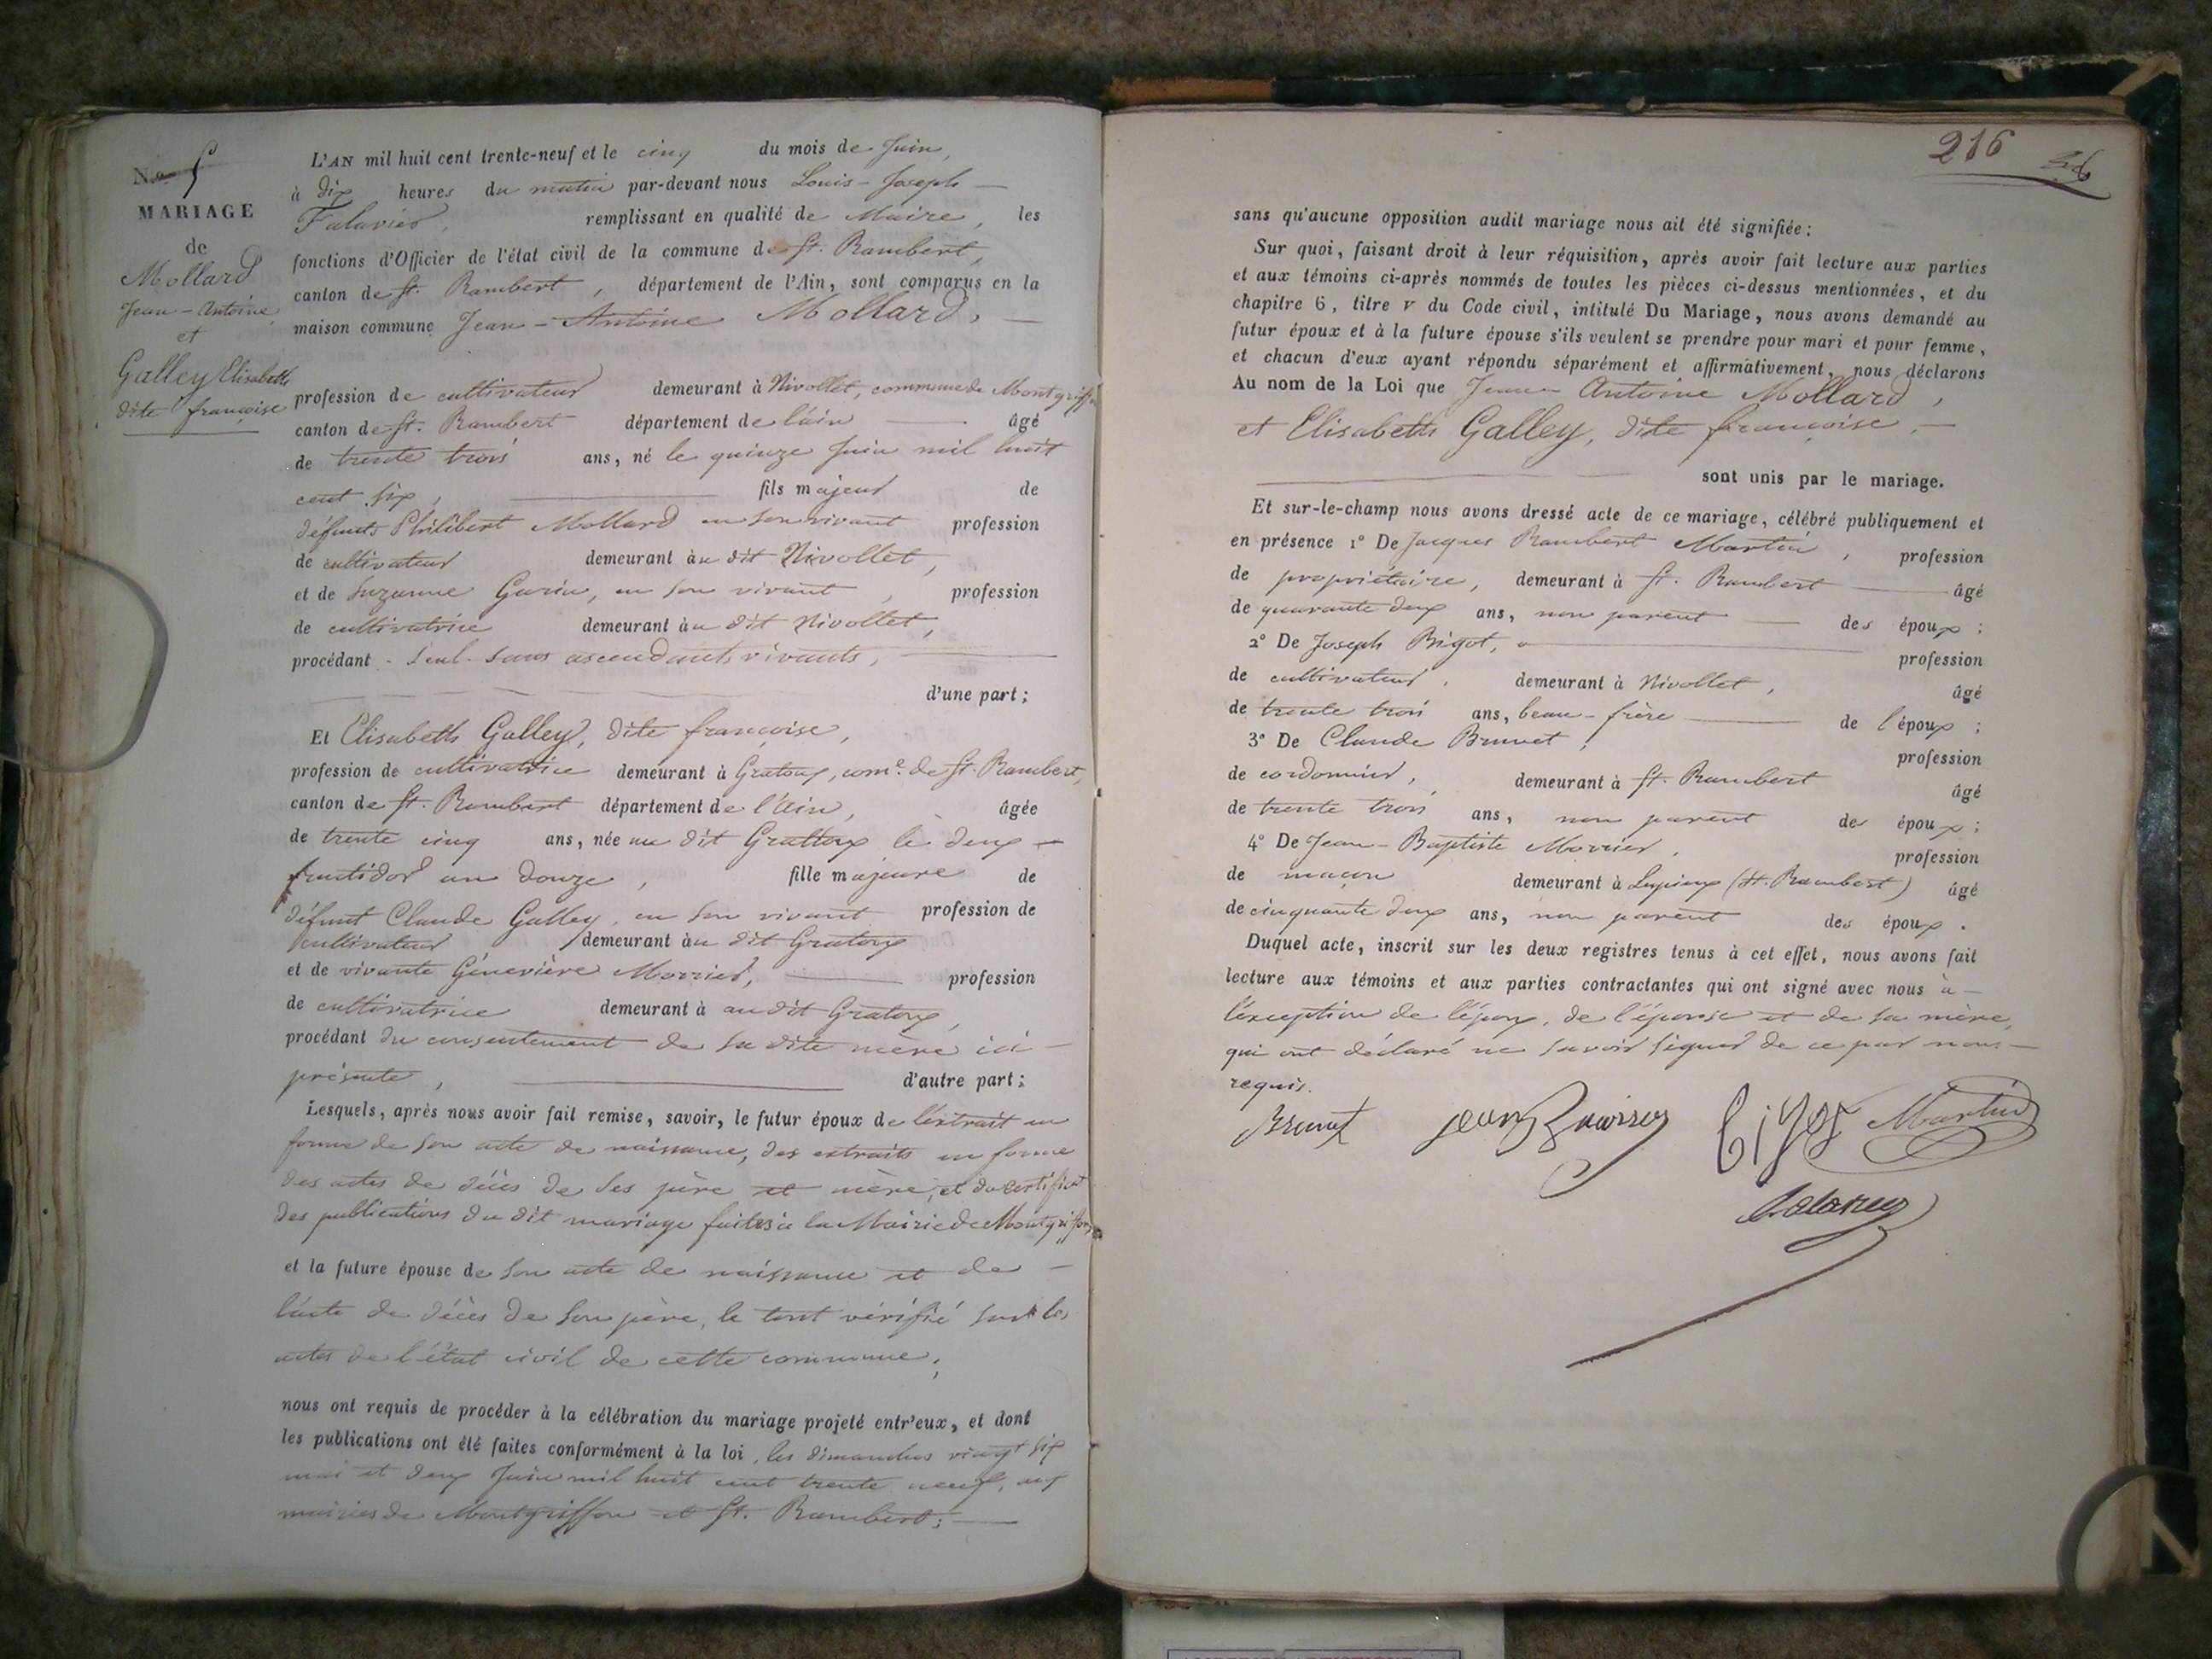 N.o 5
MARIAGE
de
Mollard
Jean-Antoine
et
Galley Elisabeth
dite françoise
L'AN mil huit cent trente-neuf et le cinq du mois de Juin,
à dix heures du matin par-devant nous Louis-Joseph
Falavier, remplissant en qualité de Maire, les
fonctions d'Officier de l'état civil de la commune de St. Rambert,
canton de St. Rambert, département de l'Ain, sont comparus en la
maison commune Jean-Antoine Mollard,
profession de cultivateur demeurant à Nivollet, commune de Montgriffon
canton de St. Rambert département de l'ain âgé
de trente trois ans, né le quinze Juin mil huit
cent six, fils majeur de
défunts Philibert Mollard en son vivant profession
de cultivateur demeurant au dit Nivollet,
et de Suzanne Gurin, en son vivant, profession
de cultivatrice demeurant au dit Nivollet,
procédant seul sans ascendants vivants,
d'une part;
Et Elisabeth Galley, dite françoise,
profession de cultivatrice demeurant à Gratoux, com.e de St. Rambert,
canton de St. Rambert département de l'Ain, âgée
de trente cinq ans, née au dit Grattoux le deux
fructidor an douze, fille majeure de
défunt Claude Galley, en son vivant profession de
cultivateur demeurant au dit Gratoux
et de vivante Génevière Morrier, profession
de cultivatrice demeurant à au dit Gratoux,
procédant du consentement de sa dite mère ici
présente, d'autre part;
Lesquels, après nous avoir fait remise, savoir, le futur époux de l'extrait en
forme de son acte de naissance, des extraits en forme
des actes de décès de ses père et mère, et du certificat
des publications du dit mariage faites à la Mairie de Montgriffon,
et la future épouse de son acte de naissance et de
l'acte de décès de son père, le tout vérifié sur les
actes de l'état civil de cette commune,
nous ont requis de procéder à la célébration du mariage projeté entr'eux, et dont
les publications ont été faites conformément à la loi, les dimanches vingt six
mai et deux Juin mil huit cent trente neuf, aux
mairies de Montgriffon et St. Rambert;
216
sans qu'aucune opposition audit mariage nous ait été signifiée:
Sur quoi, faisant droit à leur réquisition, après avoir fait lecture aux parties
et aux témoins ci-après nommés de toutes les pièces ci-dessus mentionnées, et du
chapitre 6, titre v du Code civil, intitulé Du Mariage, nous avons demandé au
futur époux et à la future épouse s'ils veulent se prendre pour mari et pour femme,
et chacun d'eux ayant répondu séparément et affirmativement, nous déclarons
Au nom de la Loi que Jean Antoine Mollard,
et Elisabeth Galley, dite françoise,
sont unis par le mariage.
Et sur-le-champ nous avons dressé acte de ce mariage, célébré publiquement et
en présence 1° De Jacques Rambert Martin, profession
de propriétaire, demeurant à St. Rambert âgé
de quarante deux ans, non parent des époux;
2° De Joseph Bigot, profession
de cultivateur, demeurant à Nivollet, âgé
de trente trois ans, beau-frère de l'époux;
3° De Claude Brunet, profession
de cordonnier, demeurant à St. Rambert âgé
de trente trois ans, non parent des époux;
4° De Jean-Baptiste Morrier, profession
de maçon demeurant à Lupieux (St. Rambert) âgé
de cinquante deux ans, non parent des époux.
Duquel acte, inscrit sur les deux registres tenus à cet effet, nous avons fait
lecture aux témoins et aux parties contractantes qui ont signé avec nous à
l'exception de l'époux, de l'épouse et de sa mère,
qui ont déclaré ne savoir signer de ce par nous
requis.
Brunet Bigot Martin